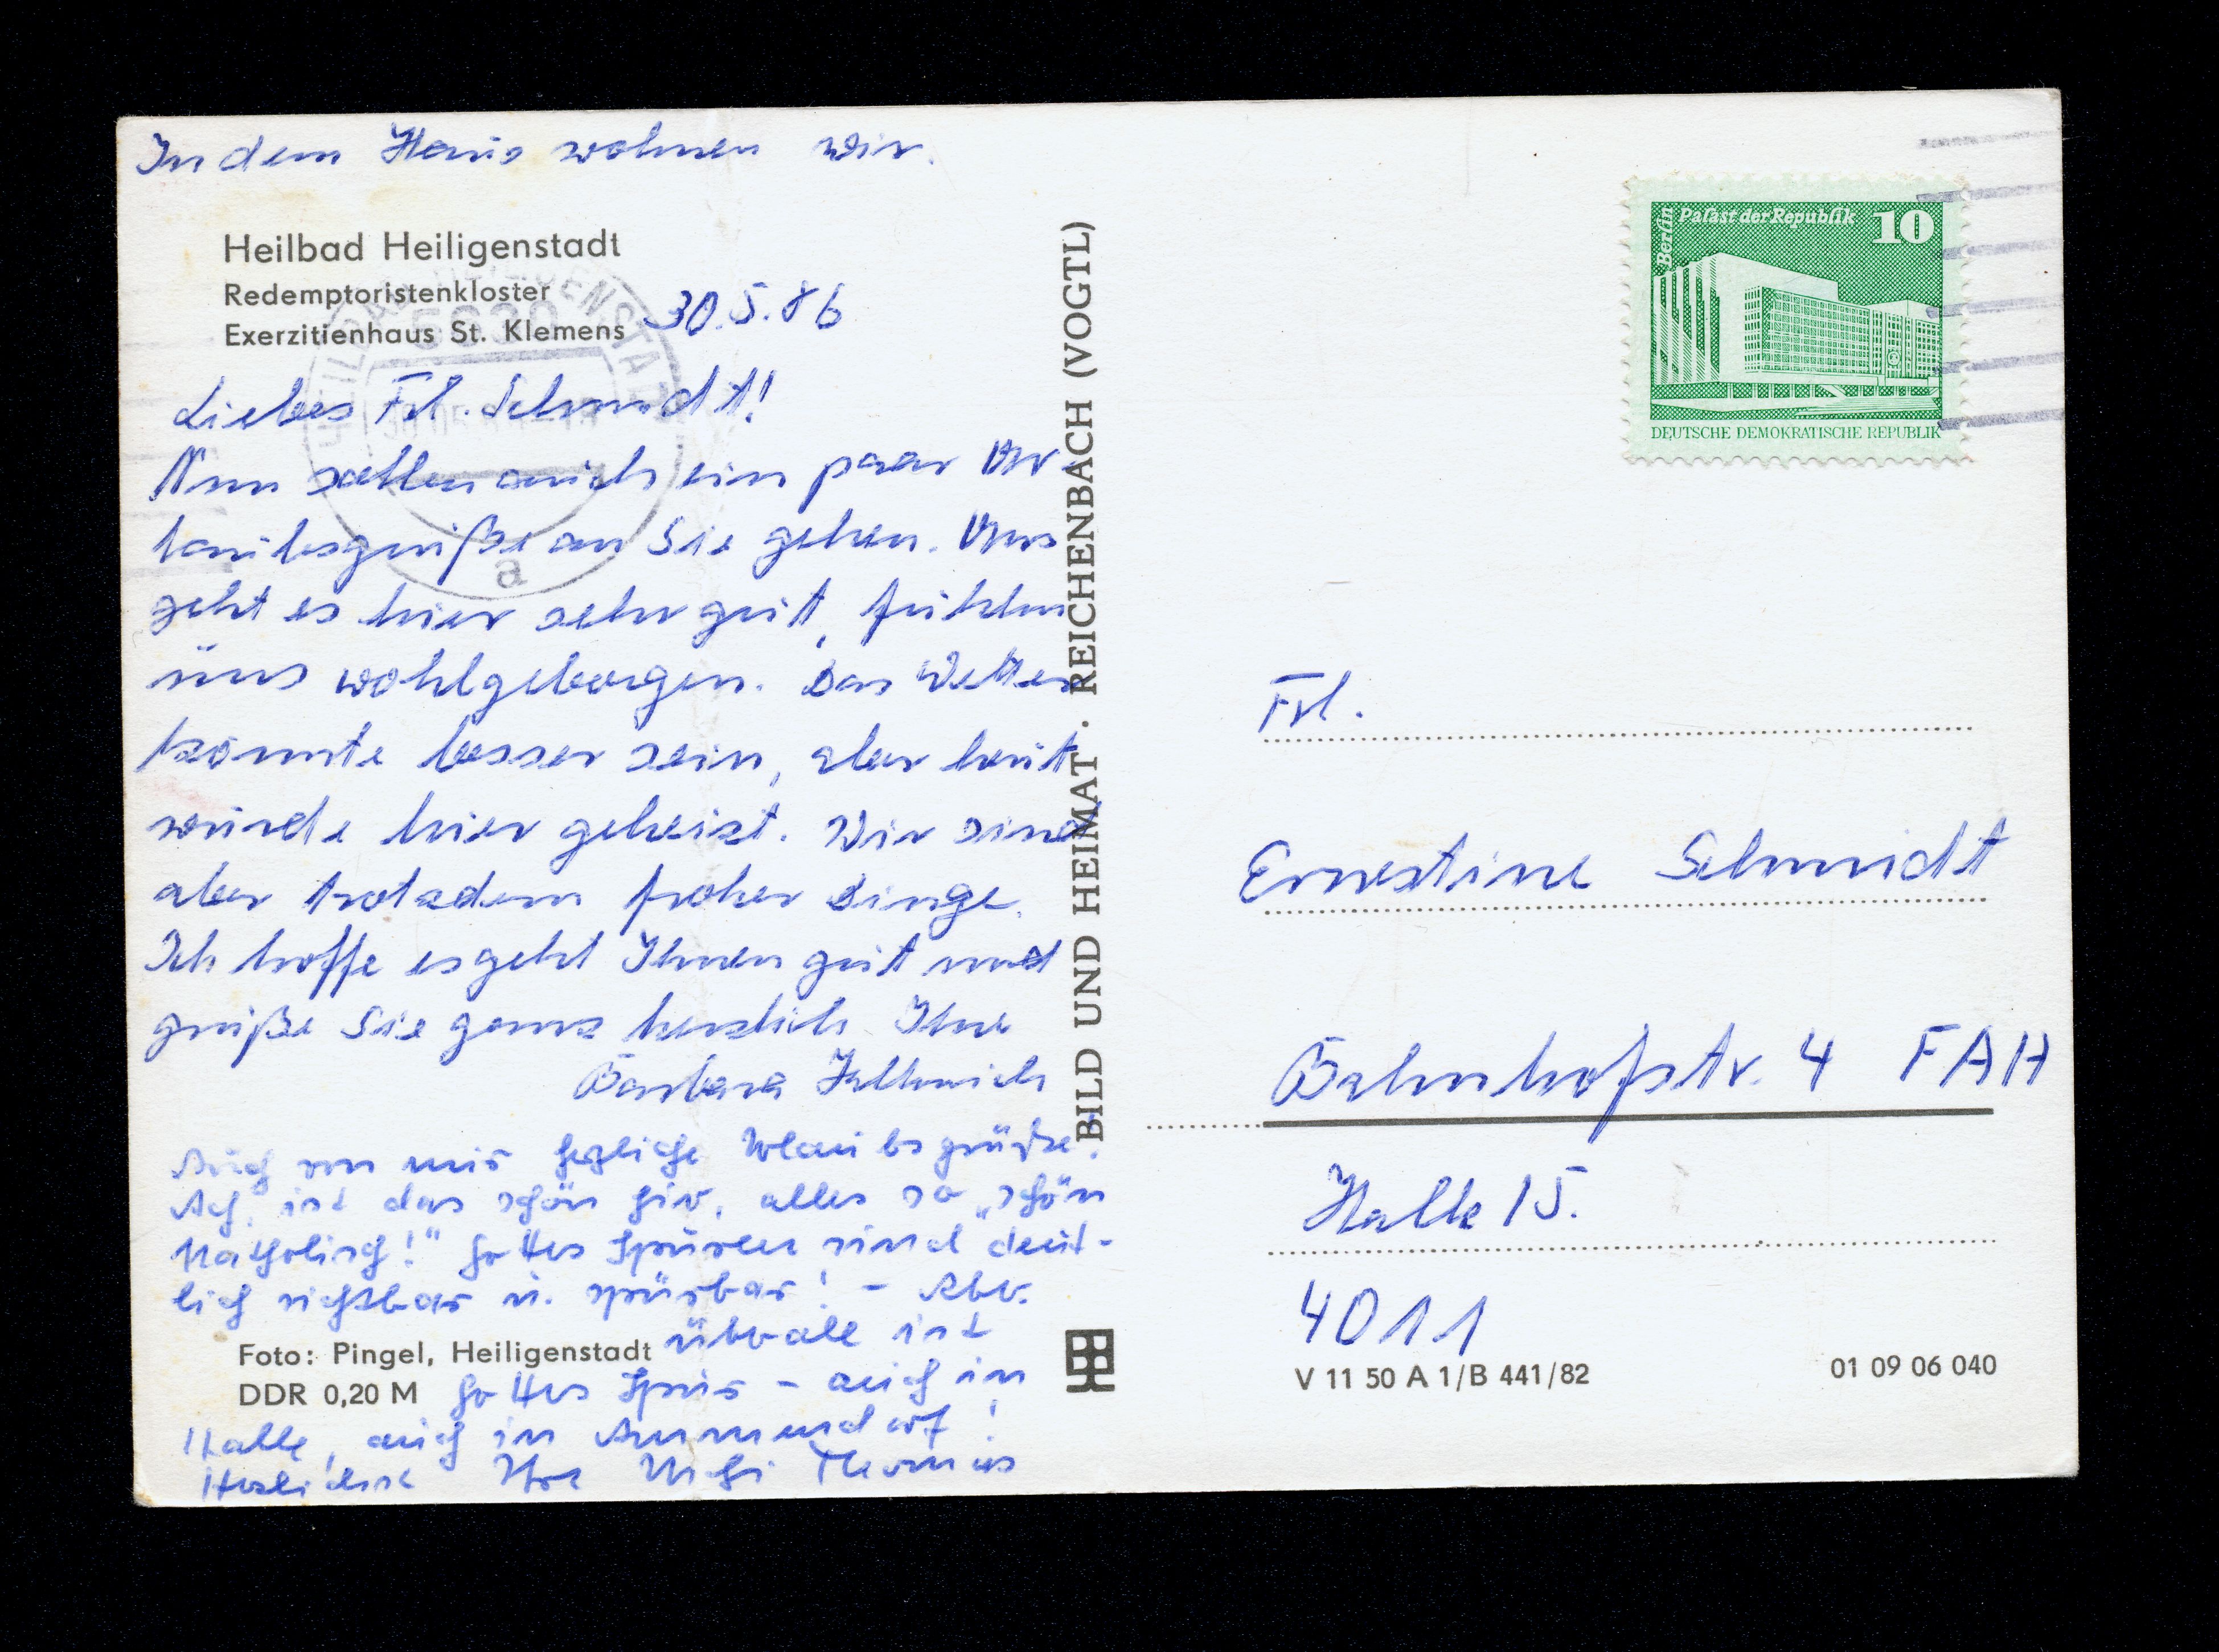 In dem Haus wohnen wir.
Heilbad Heiligenstadt
Redemptoristenkloster
Exerzitienhaus St. Klemens
30.5.86
Liebes Frl. Schmidt!
Nun sollen auch ein paar Ur-
laubsgrüße an Sie gehen. Uns
geht es hier sehr gut, fühlen
uns wohlgeborgen. Das Wetter
könnte besser sein, aber heut
wurde hier geheizt. Wir sind
aber trotzdem froher Dinge.
Ich hoffe es geht Ihnen gut und
grüße Sie ganz herzlich Ihre
Barbara
Auch von mir herzliche Urlaubsgrüße!
Ach, ist das schön hier, alles so „schön
katholisch!" Gottes Spuren sind deut-
lich sichtbar u. spürbar! - Aber
überall ist
Gottes Spur - auch in
Halle, auch in Ammendorf!
Ihre
Foto: Pingel, Heiligenstadt
DDR 0,20 M
BILD UND HEIMAT · REICHENBACH (VOGTL)
HEILBAD HEILIGENSTADT
5630
a
Berlin
Palast der Republik
10
DEUTSCHE DEMOKRATISCHE REPUBLIK
Frl.
Ernestine Schmidt
Bahnhofstr. 4 FAH
Halle 15.
4011
V 11 50 A 1/B 441/82
01 09 06 040